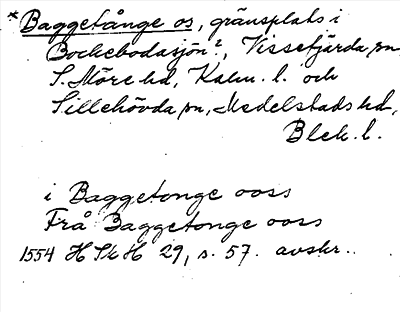 *Baggetånge os, gränsplats i
Bockebodasjön?, Vissefjärda sn
S. Möre hd, Kalm. l. och
Sillehövda sn, Medelstads hd,
Blek. l.
i Baggetonge ooss
Frå Baggetonge ooss
1554 HSkH 29, s. 57. avskr..